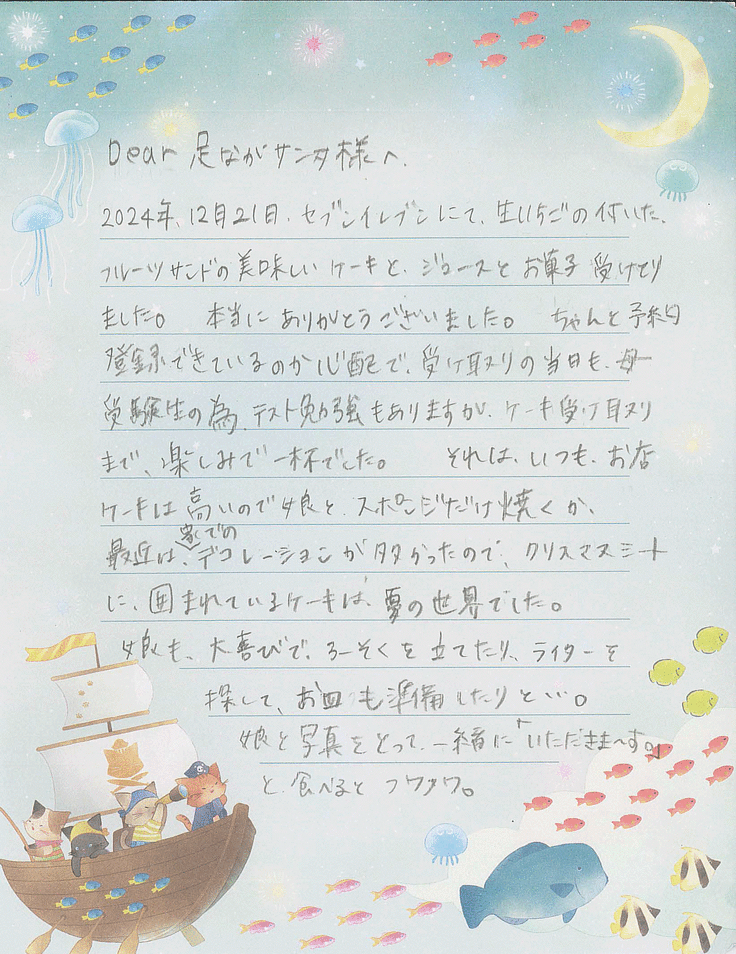 Dear 足ながサンタ様へ.
2024年、12月21日、セブンイレブンにて、生いちごの付いた、
フルーツサンドの美味しいケーキと、ジュースとお菓子受けとり
ました。 本当にありがとうございました。 ちゃんと予約
登録できているのか心配で、受け取りの当日も、母一
受験生の為、テスト勉強もありますが、ケーキ受け取り
まで、楽しみで一杯でした。 それは、いつも、お店
ケーキは高いので娘と、スポンジだけ焼くか、
最近は、家でのデコレーションが多かったので、クリスマスシート
に、囲まれているケーキは、夢の世界でした。
娘も、大喜びで、ろーそくを立てたり、ライターを
探して、お皿も準備したりと…。
娘と写真をとって、一緒に「いただきま~す。」
と、食べるとフワフワ。